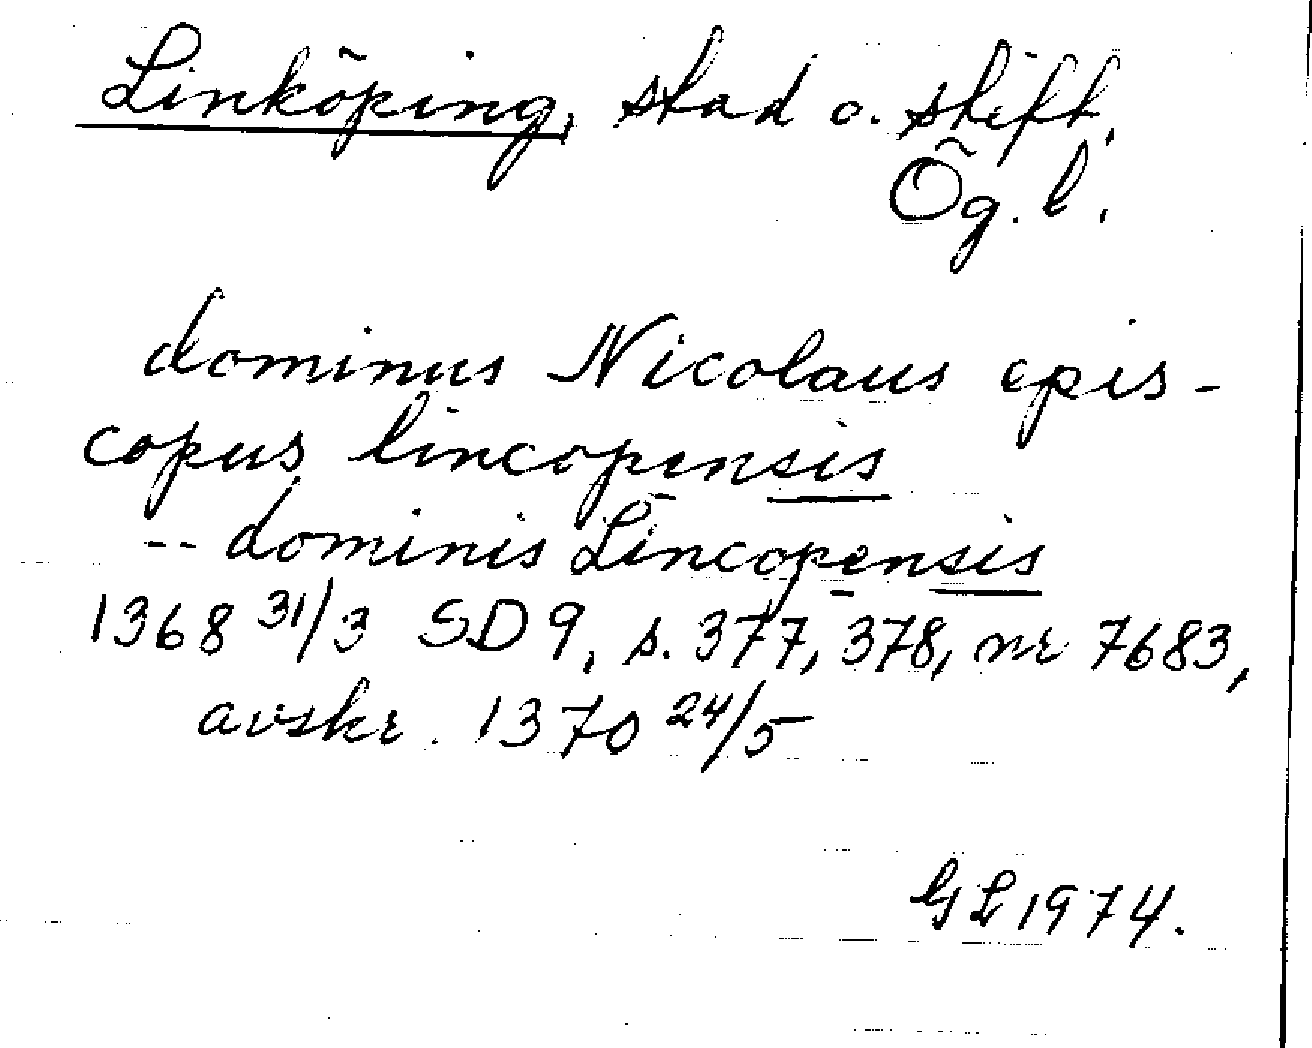 Linköping, stad o. stift,
Ög. l.
dominus Nicolaus epis-
copus lincopensis
-- dominis Lincopensis
1368 31/3 SD 9, s. 377, 378, nr 7683,
avskr. 1370 24/5
GL 1974.